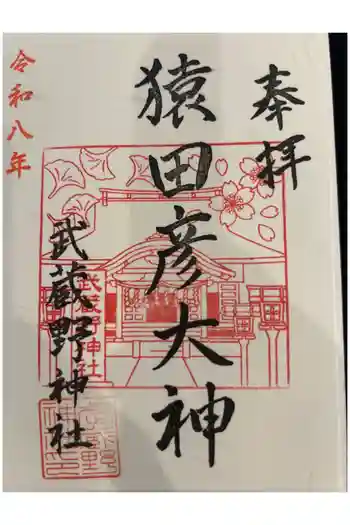 奉拝
猿田彦大神
武蔵野神社
武蔵野神社
令和八年